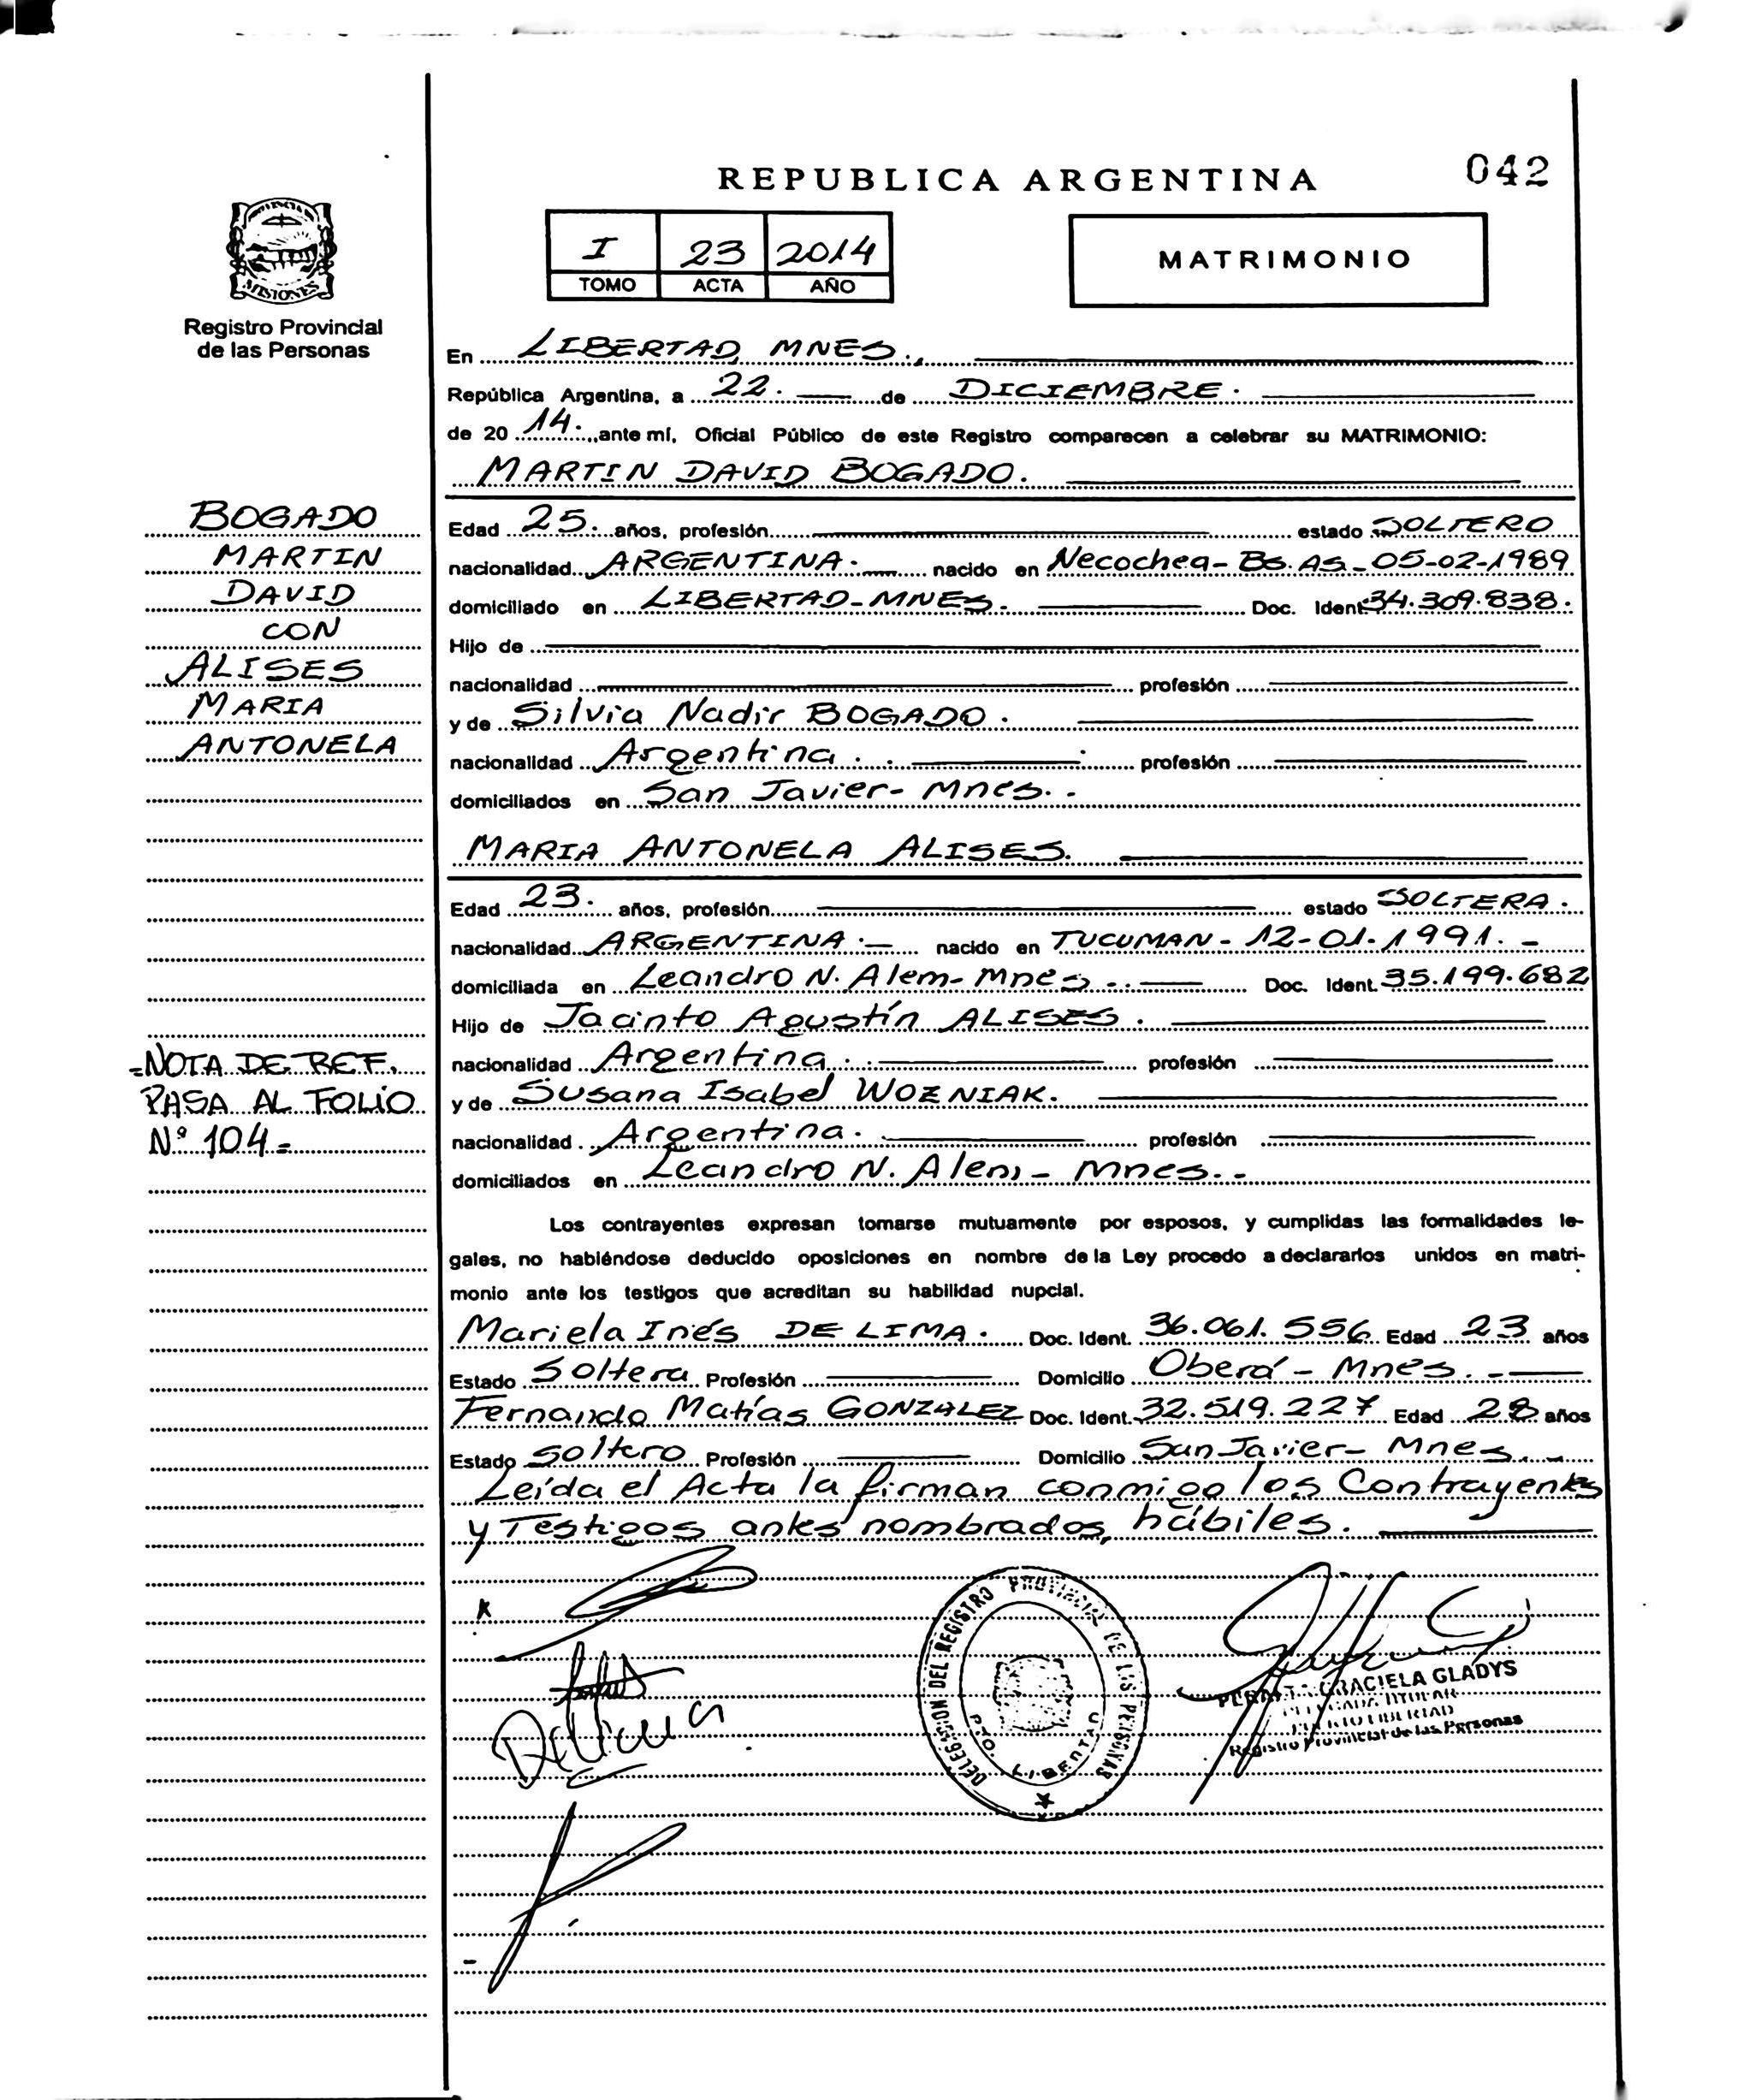 REPUBLICA ARGENTINA
042
MISIONES
Registro Provincial
de las Personas
I 23 2014
TOMO ACTA AÑO
MATRIMONIO
En LIBERTAD, MNES.,
República Argentina, a 22. de DICIEMBRE.
de 20 14. ,ante mí, Oficial Público de este Registro comparecen a celebrar su MATRIMONIO:
MARTIN DAVID BOGADO.
BOGADO
MARTIN
DAVID
CON
ALISES
MARIA
ANTONELA
Edad 25. años, profesión estado SOLTERO
nacionalidad ARGENTINA. nacido en Necochea- Bs. As- 05-02-1989
domiciliado en LIBERTAD-MNES. Doc. Ident 34.309.838.
Hijo de
nacionalidad profesión
y de Silvia Nadir BOGADO.
nacionalidad Argentina. profesión
domiciliados en San Javier- Mnes.-
MARIA ANTONELA ALISES.
Edad 23. años, profesión estado SOLTERA.
nacionalidad ARGENTINA.- nacido en TUCUMAN- 12-01.1991.-
domiciliada en Leandro N. Alem- Mnes.. Doc. Ident. 35.199.682
Hijo de Jacinto Agustín ALISES.
nacionalidad Argentina. profesión
y de Susana Isabel WOZNIAK.
nacionalidad Argentina. profesión
domiciliados en Leandro N. Alem- Mnes.-
=NOTA DE REF.
PASA AL FOLIO
Nº 104=
Los contrayentes expresan tomarse mutuamente por esposos, y cumplidas las formalidades le-
gales, no habiéndose deducido oposiciones en nombre de la Ley procedo a declararlos unidos en matri-
monio ante los testigos que acreditan su habilidad nupcial.
Mariela Inés DE LIMA. Doc. Ident. 36.061.556 Edad 23 años
Estado Soltera Profesión Domicilio Oberá- Mnes.-
Fernando Matías GONZALEZ Doc. Ident. 32.519.227 Edad 28 años
Estado Soltero Profesión Domicilio San Javier- Mnes.-
Leída el Acta la firman conmigo los Contrayentes
y Testigos antes nombrados, hábiles.
DELEGACION DEL REGISTRO PROVINCIAL DE LAS PERSONAS
PTO. LIBERTAD
GRACIELA GLADYS
Registro Provincial de las Personas